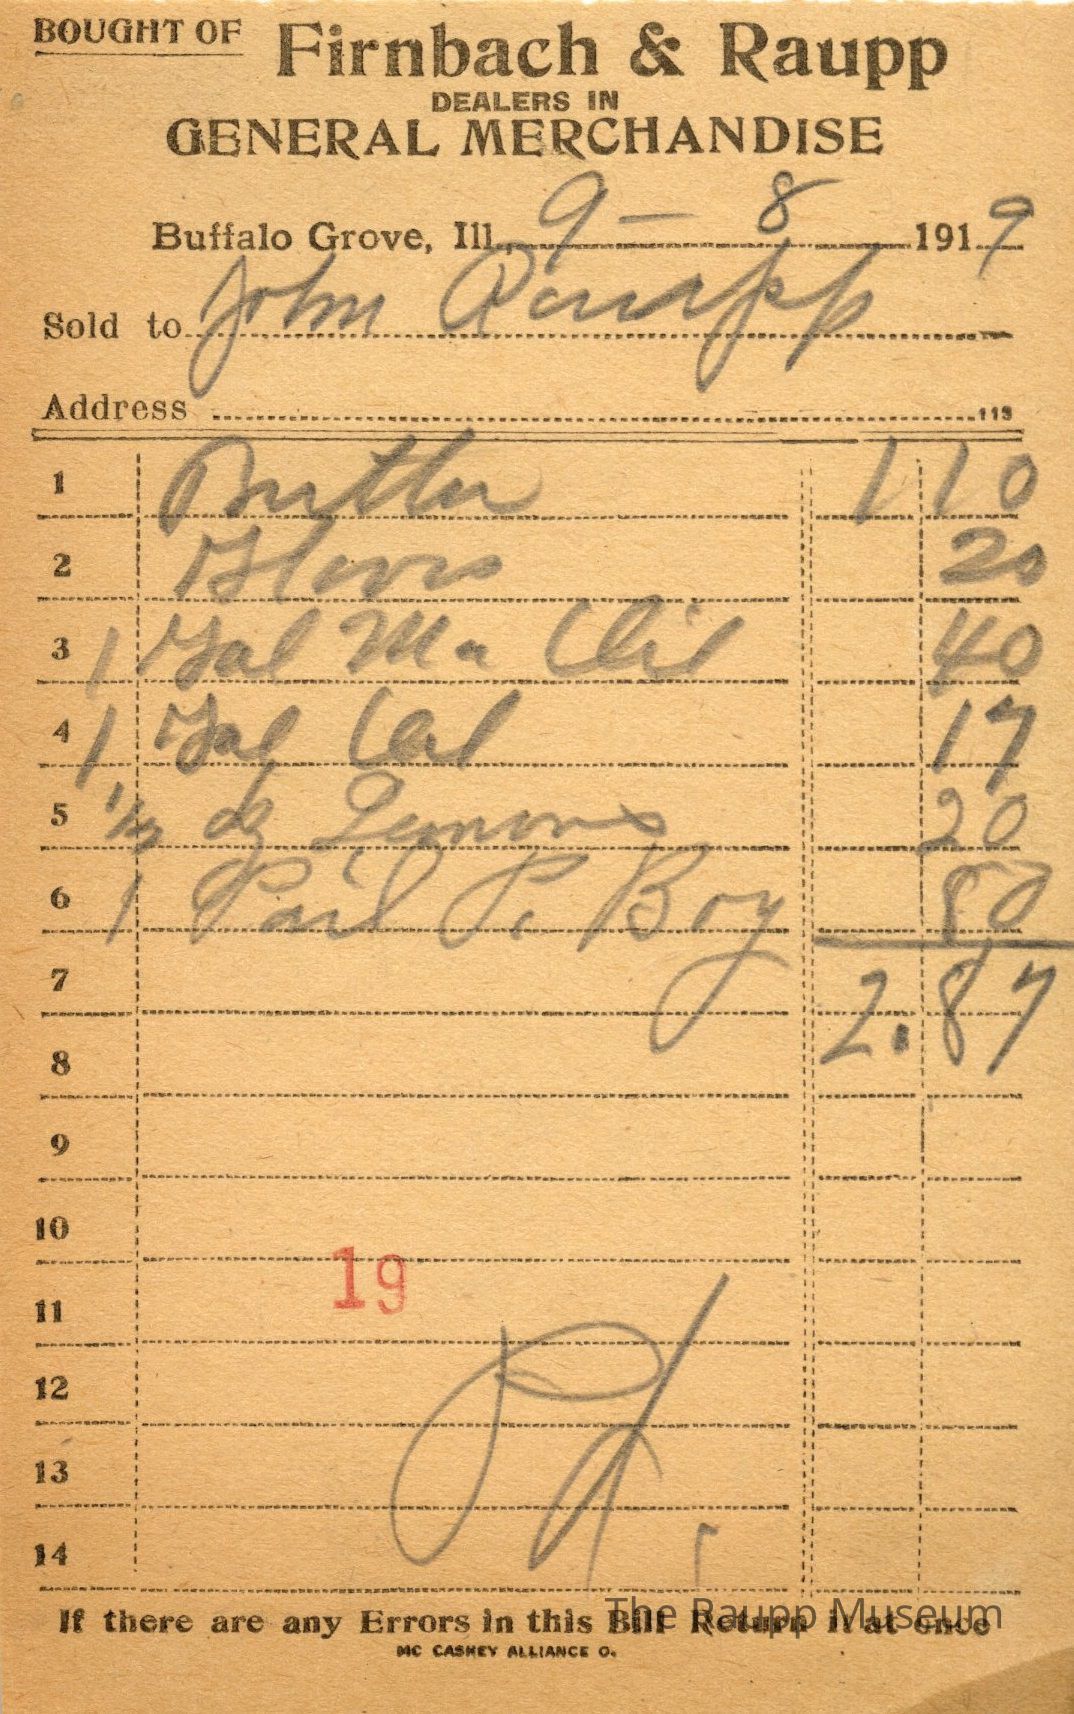 BOUGHT OF Firnbach & Raupp
DEALERS IN
GENERAL MERCHANDISE
Buffalo Grove, Ill., 9 - 8 1919
Sold to John Raupp
Address 113
1 Butter 1 10
2 Gloves 20
3 1 Gal Ma Oil 40
4 1 Gal Oil 17
5 1/2 dz Lemons 20
6 1 Pail P. Boy 80
7 2.87
8
9
10
19
11
12
13
14
If there are any Errors in this Bill Return it at once
The Raupp Museum
MC CASKEY ALLIANCE O.